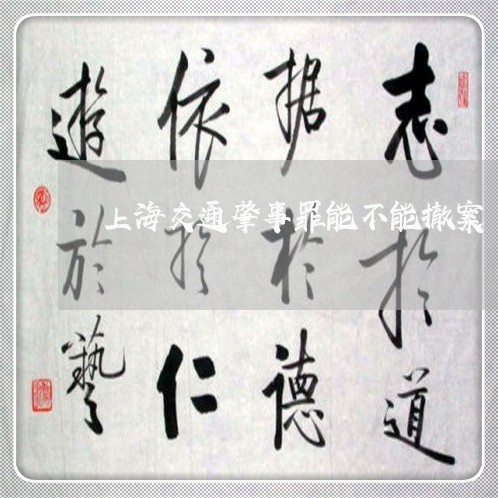 志於道
据於德
依於仁
遊於藝
上海交通肇事罪能不能撤案